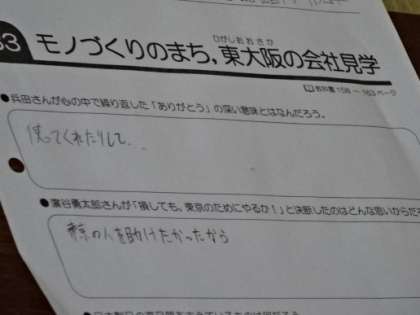 33 モノづくりのまち,東大阪の会社見学
ひがしおおさか
教科書 158 ~ 163ページ
●兵田さんが心の中で繰り返した「ありがとう」の深い意味とはなんだろう。
使ってくれたりして、
●濵谷勇太郎さんが「損しても,東京のためにやるか!」と決断したのはどんな思いからだ
東京の人を助けたかったから